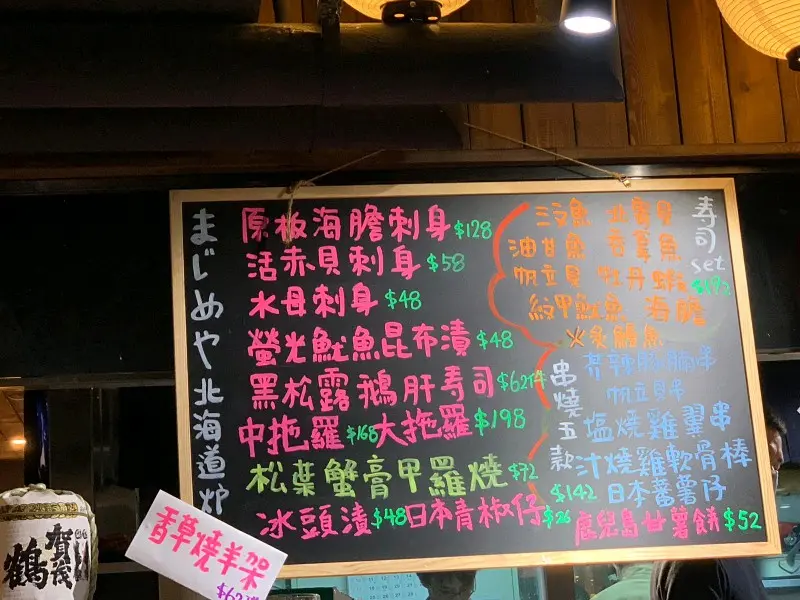 まじめや北海道炉
原板海膽刺身$128
活赤貝刺身$58
水母刺身$48
螢光魷魚昆布漬$48
黑松露鵝肝寿司$62/2件
中拖羅$168大拖羅$198
松葉蟹膏甲羅燒$72
冰頭漬$48日本青椒仔$26
寿司set
三文魚 北寄貝
油甘魚 吞拿魚
帆立貝 牡丹蝦
紋甲魷魚 海膽
火炙鯛魚
串燒五款
$142
芥辣豚腩串
帆立貝串
塩燒雞翼串
汁燒雞軟骨棒
日本蕃薯仔
鹿兒島甘薯餅$52
香草燒羊架
賀茂鶴